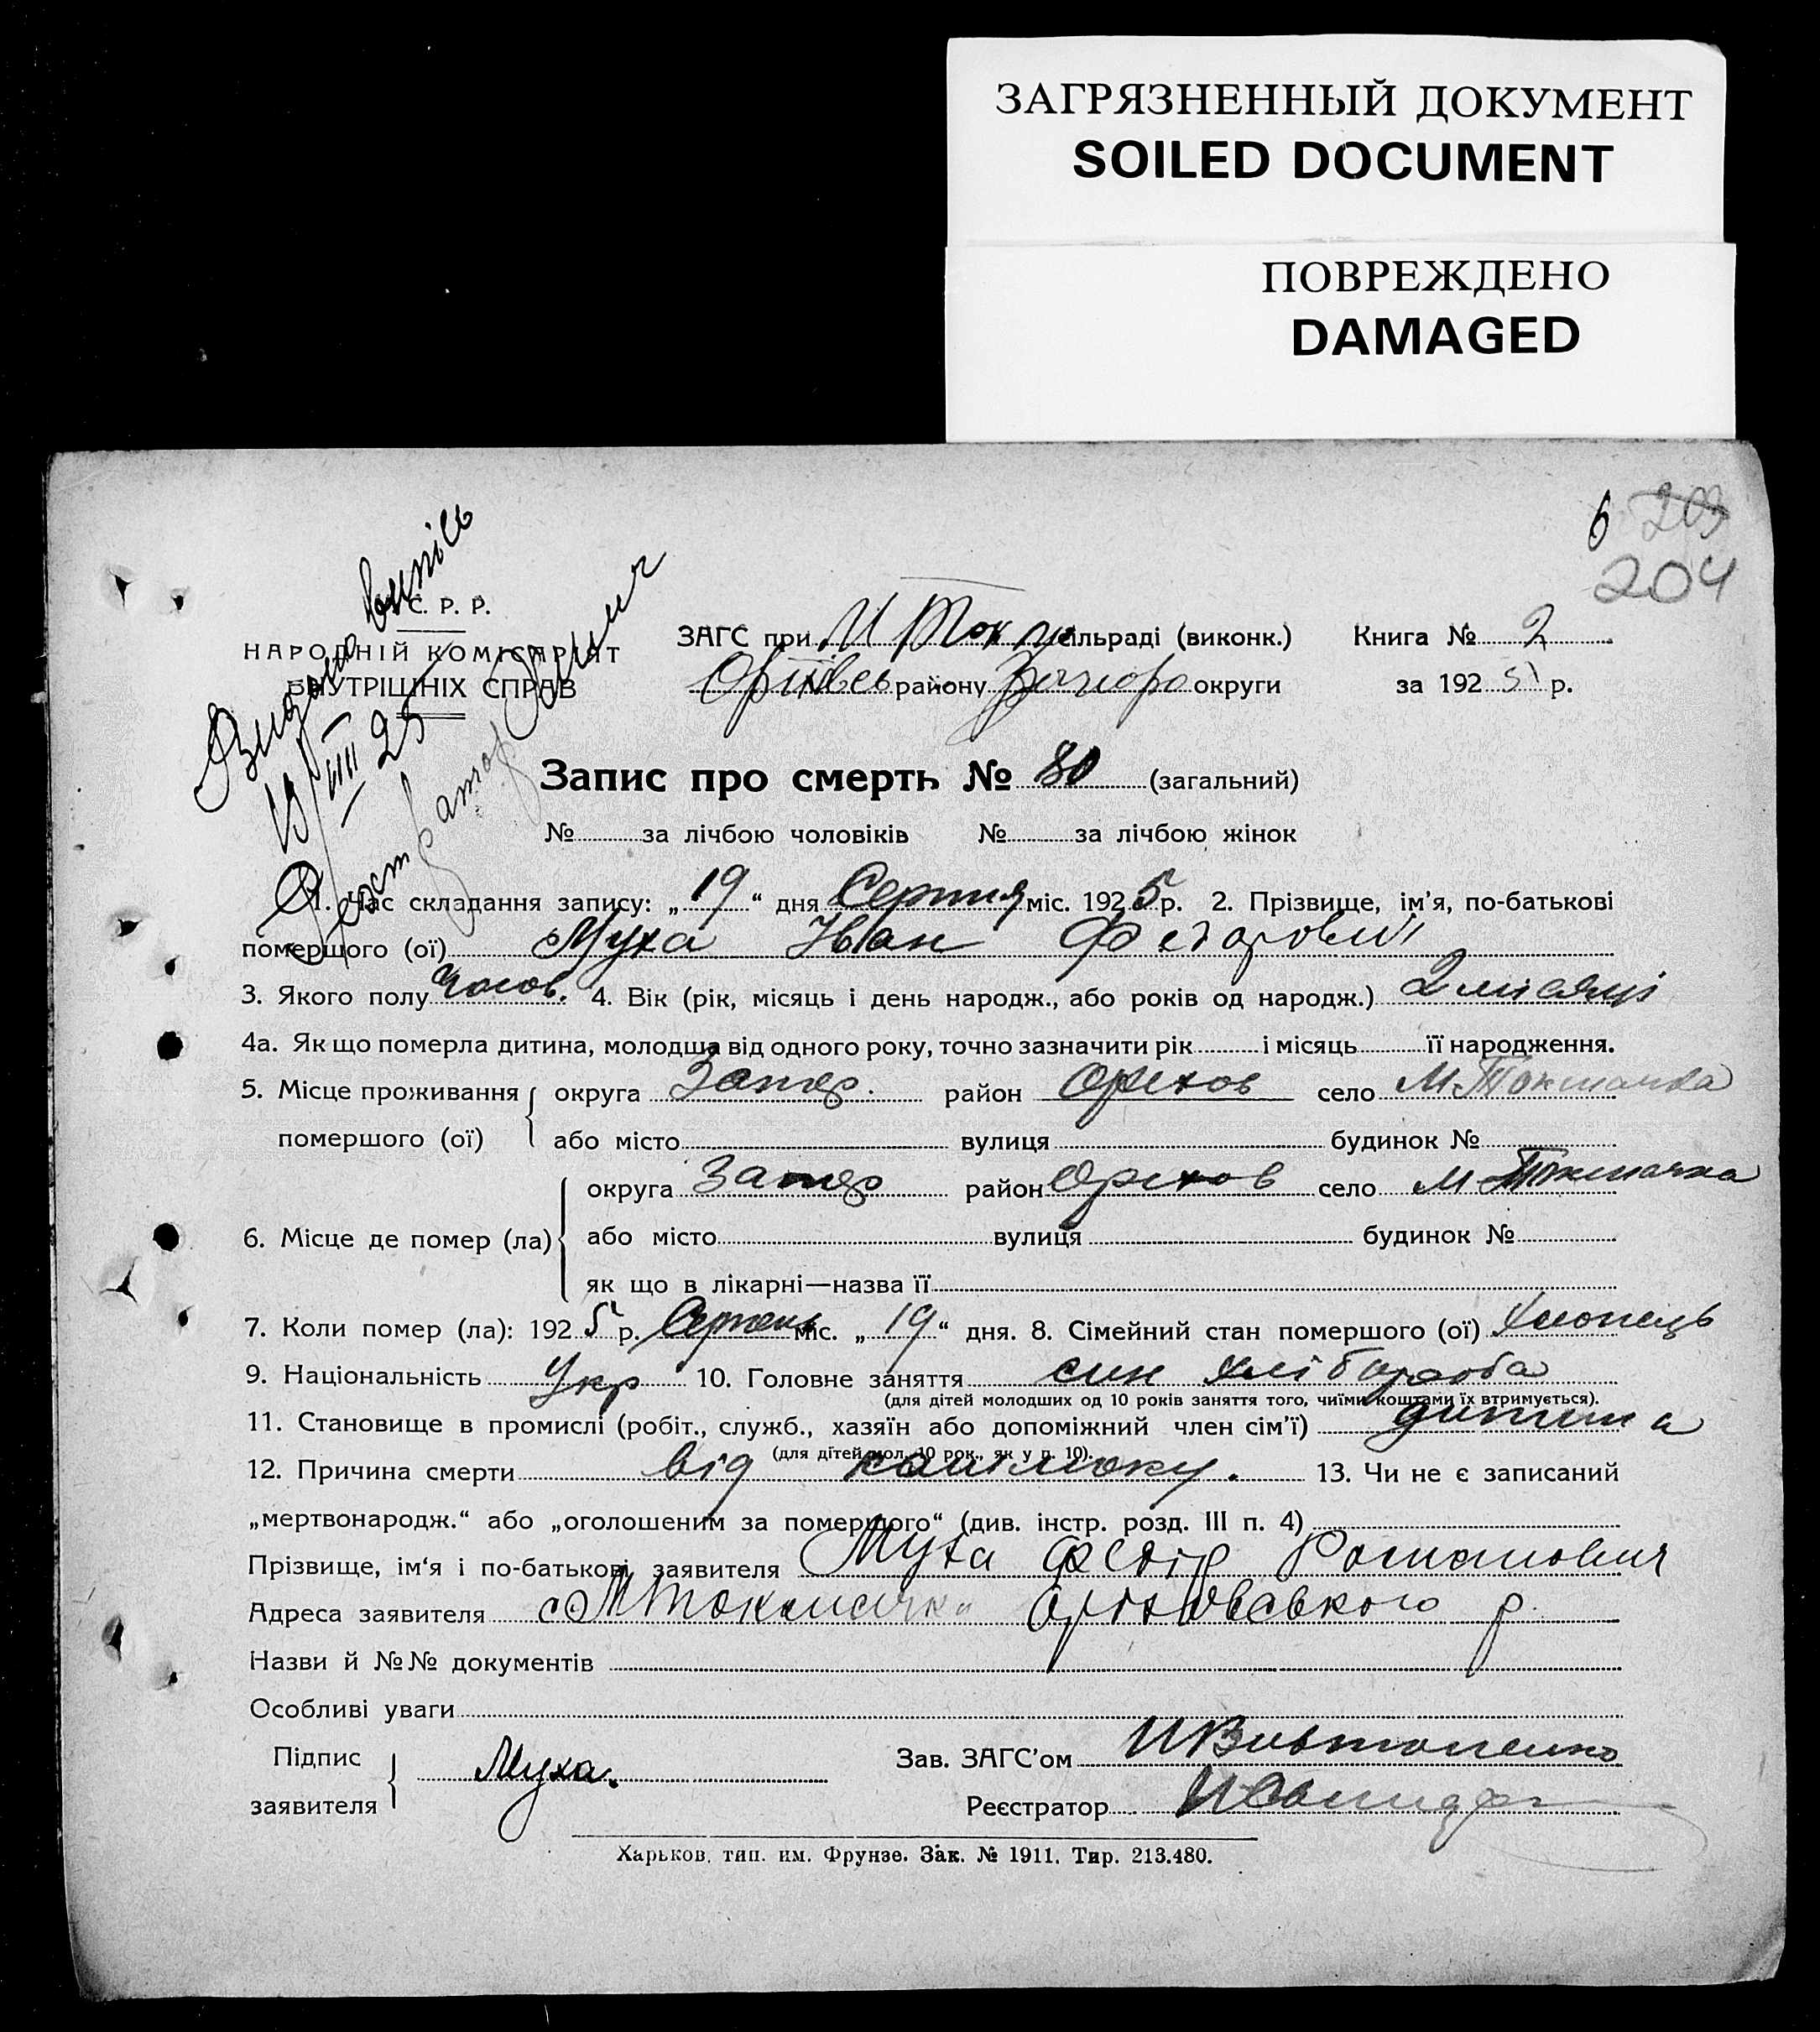 ЗАГРЯЗНЕННЫЙ ДОКУМЕНТ
SOILED DOCUMENT
ПОВРЕЖДЕНО
DAMAGED
6 203
204
С. Р. Р.
НАРОДНІЙ КОМІСАРІЯТ
ВНУТРІШНІХ СПРАВ
Видано випісь
19/VIII 25
ЗАГС при М Ток сільраді (виконк.) Книга № 2
району округи за 1925 р.
Запис про смерть № 80 (загальний)
№ за лічбою чоловіків № за лічбою жінок
1. Час складання запису: „19“ дня Серпня міс. 1925 р. 2. Прізвище, ім'я, по-батькові
помершого (ої) Муха Іван Федорович
3. Якого полу 4. Вік (рік, місяць і день народж., або років од народж.) 2 місяці
4а. Як що померла дитина, молодша від одного року, точно зазначити рік і місяць її народження.
5. Місце проживання округа Запор. район Орехов село М-Токмачка
помершого (ої) або місто вулиця будинок №
округа Запор район Орехов село М-Токмачка
6. Місце де помер (ла) або місто вулиця будинок №
як що в лікарні—назва її
7. Коли помер (ла): 1925 р. Серпень міс. „19“ дня. 8. Сімейний стан помершого (ої) хлопець
9. Національність Укр 10. Головне заняття син хлібороба
(для дітей молодших од 10 років заняття того, чиїми коштами їх втримується).
11. Становище в промислі (робіт., служб., хазяїн або допоміжний член сім'ї) дитина
(для дітей мол. 10 рок., як у п. 10).
12. Причина смерти від кашлюку. 13. Чи не є записаний
„мертвонародж.“ або „оголошеним за помершого“ (див. інстр. розд. III п. 4)
Прізвище, ім'я і по-батькові заявителя Муха Федір Романович
Адреса заявителя с М Токмачка Оріхівського р.
Назви й №№ документів
Особливі уваги
Підпис заявителя Муха. Зав. ЗАГС'ом
Реєстратор
Харьков, тип. им. Фрунзе. Зак. № 1911. Тир. 213.480.